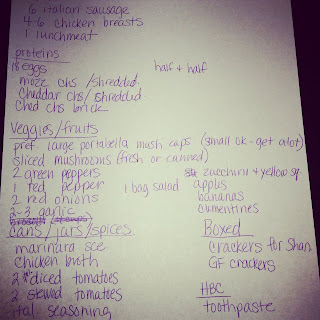 6 italian sausage
4-6 chicken breasts
1 lunchmeat
proteins
18 eggs
half + half
mozz chs / shredded
cheddar chs / shredded
Ched chs brick
Veggies/fruits
pref. large portabella mush caps (small ok - get alot)
sliced mushrooms (fresh or canned)
2 green peppers
zucchini + yellow sq
1 red pepper
1 bag salad
apples
2 red onions
bananas
2-3 garlic
clementines
cans/jars/spices
Boxed
marinara sce
crackers for Shan
chicken broth
GF crackers
2 diced tomatoes
2 stewed tomatoes
HBC
ital seasoning
toothpaste